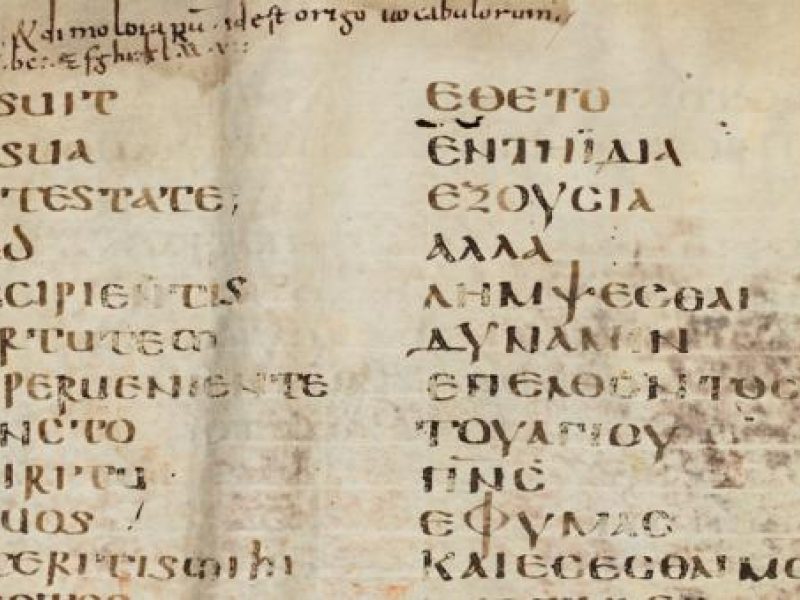 &dimoloiarū . idest origo uocabulorum.
SUIT
SUA
TESTATE;
D
CIPIENTIS
RTUTEM
PERUENIENTE
NCTO
IRITU
UOS
ERITISMIHI
ΕΘΕΤΟ
ΕΝΤΗΪΔΙΑ
ΕΞΟΥϹΙΑ
ΑΛΛΑ
ΛΗΜΨΕϹΘΑΙ
ΔΥΝΑΜΙΝ
ΕΠΕΛΘΟΝΤΟϹ
ΤΟΥΑΓΙΟΥ
ΠΝϹ
ΕΦΥΜΑϹ
ΚΑΙΕϹΕϹΘΑΙΜΟ